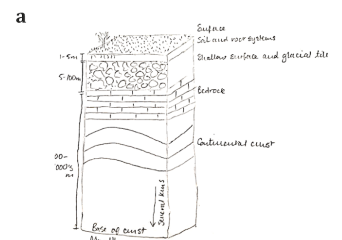 a
Surface
Soil and root systems
1-5m
Shallow surface and glacial tile
5-100m
Bedrock
Continental crust
00-
000's
m
several kms
Base of crust